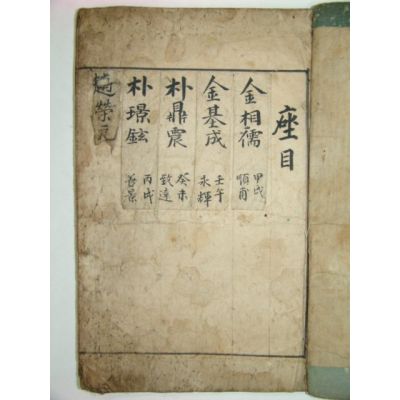 座目
金相儒 甲戌
金基成 壬午 永輝
朴鼎震 癸未 致達
朴璟鉉 丙戌
趙榮元